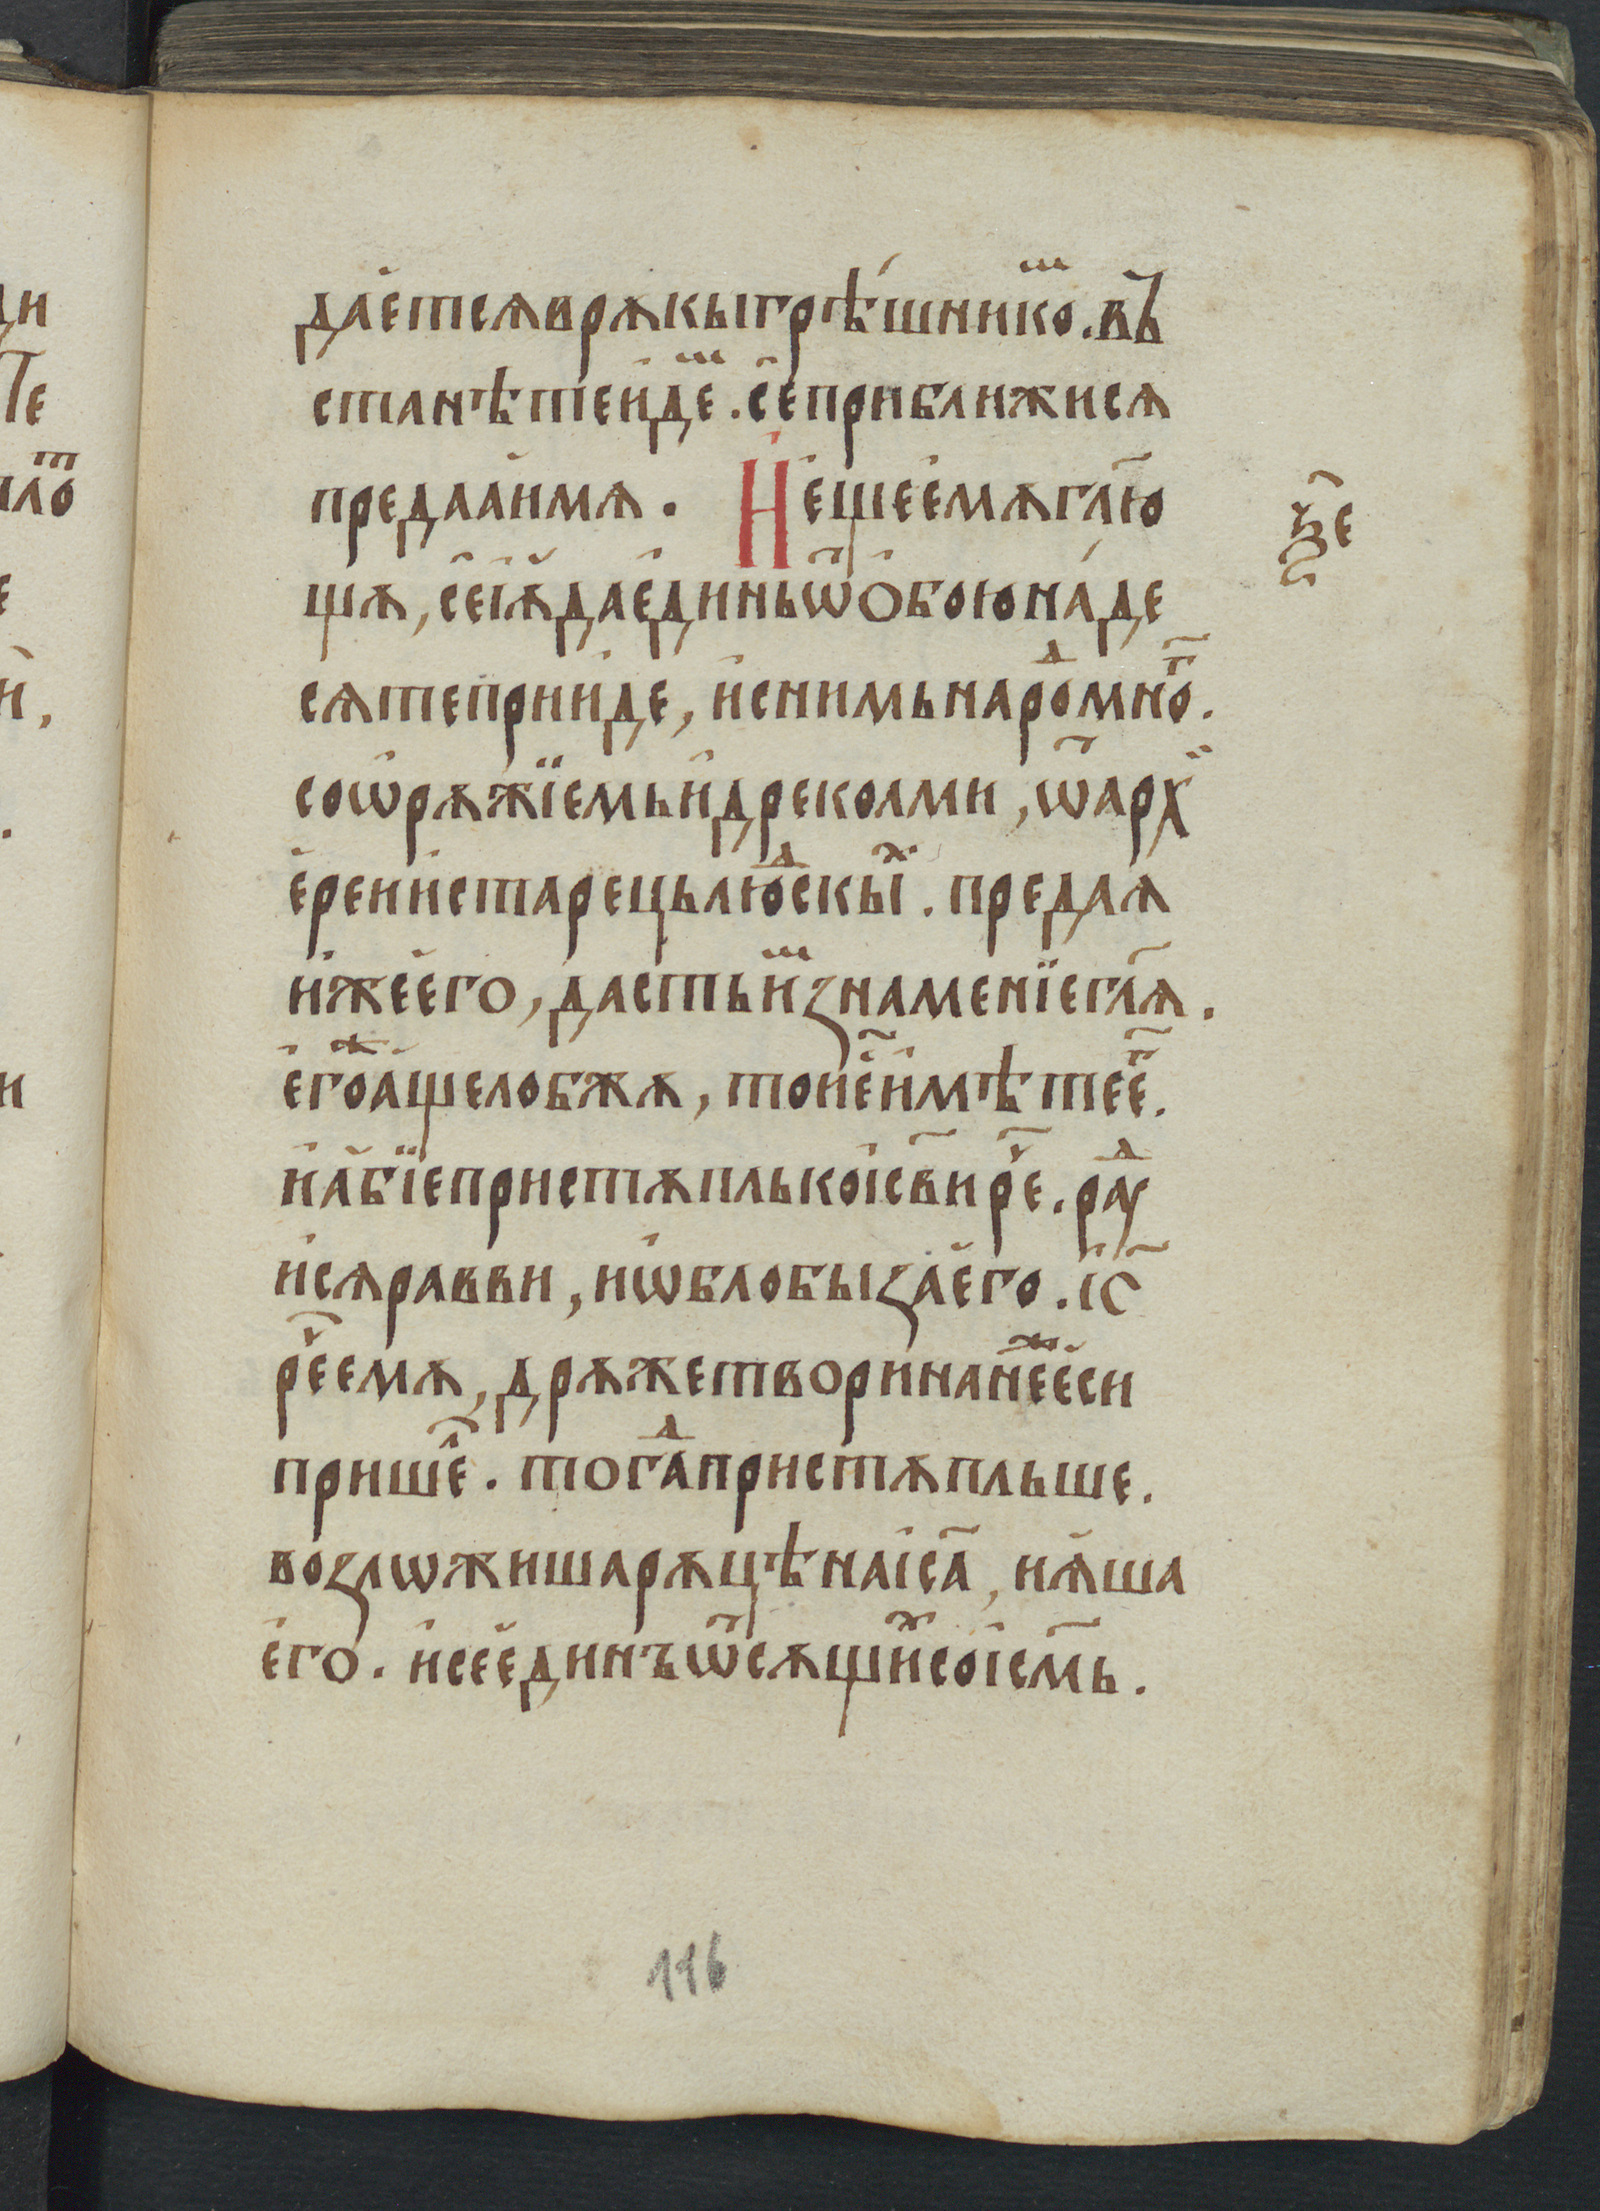 ди
Те
ило
е
и,
и
дае҆тсѧ врѫкы грѣ́шникѡⷨ. въ
станѣте и҆деⷨ. се҆ приближисѧ
предаа҆и мѧ. И҆ еще е҆мѫ гл҃ю
щѫ, се҆ і҆ѫда е҆динь ѿ ѻ҆бою на́де
сѧте прииде, и҆ с нимь нароⷣ мноⷢ҇.
со ѡ҆рѫжїемь и҆ дреколми, ѿ а҆рхї
е҆реи и҆ старець люⷣскыⷯ. предаѧ
и҆ же е҆го, дасть и҆ⷨ знаменїе гл҃ѧ.
е҆гоⷤ а҆ще лобжѫ, то и҆ е҆҃ и҆мѣте е҆ⷢ҇.
и҆ а҆бїе пристѫпль ко і҆с҃ви реⷱ҇. раⷣу
и҆сѧ равви, и ѡ҆блобыза е҆го. і҆с҃
реⷱ҇ е҆мѫ, дрѫже твори на неⷤ е҆си
пришеⷧ҇. тогⷣа пристѫпльше.
возлѡжиша рѫцѣ на і҆с҃а, и ѩ҆ша
е҆го. и҆ се е҆динъ ѿ сѫщиⷯ со і҆с҃мь.
116